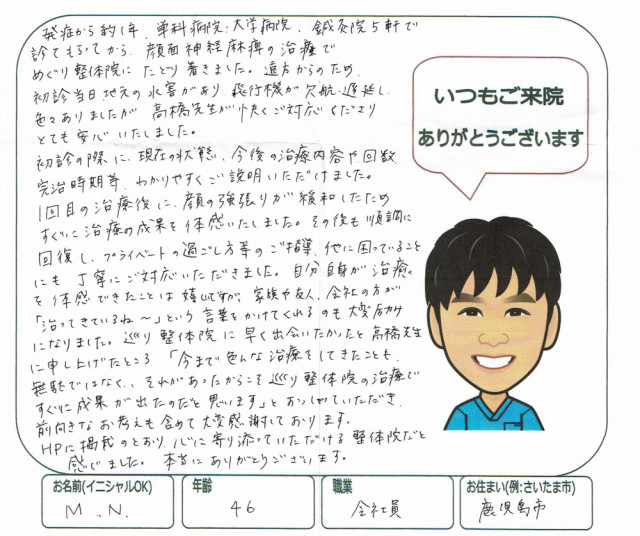 発症から約1年、単科病院、大学病院、鍼灸院5軒で
診てもらってから、顔面神経麻痺の治療で
めぐり整体院にたどり着きました。遠方からのため、
初診当日地元の水害があり 飛行機が欠航、遅延し、
色々ありましたが 高橋先生が快くご対応くださり
とても安心いたしました。
初診の際に、現在の状態、今後の治療内容や回数、
完治時期等、わかりやすくご説明いただけました。
1回目の治療後に、顔の強張りが緩和したため
すぐに治療の成果を体感いたしました。その後も順調に
回復し、プライベートの過ごし方等のご指導、他に困っていること
にも丁寧にご対応いただきました。自分自身が治癒
を体感できたことは嬉しいですが、家族や友人、会社の方が
「治ってきているね〜」という言葉をかけてくれるのも大変励み
になりました。巡り整体院に早く出会いたかったと高橋先生
に申し上げたところ 「今まで色んな治療をしてきたことも、
無駄ではなく、それがあったからこそ巡り整体院の治療で
すぐに成果が出たのだと思います」とおっしゃていただき、
前向きなお考えも含めて大変感謝しております。
HPに掲載のとおり、心に寄り添っていただける整体院だと
感じました。 本当にありがとうございます。
いつもご来院
ありがとうございます
お名前(イニシャルOK) 年齢 職業 お住まい(例:さいたま市)
M.N. 46 会社員 鹿児島市